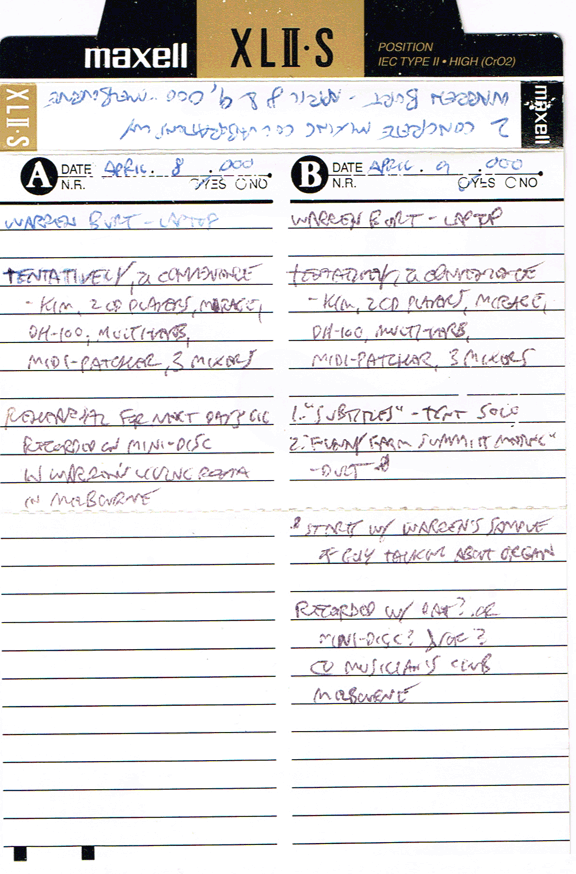 maxell
XLII·S
POSITION
IEC TYPE II • HIGH (CrO2)
XLII·S
maxell
2 CONCRETE MIXING COLLABORATIONS W/
WARREN BURT - APRIL 8 & 9, 000 - MELBOURNE
A DATE APRIL . 8 . 000
N.R. YES NO
WARREN BURT - LAPTOP
TENTATIVELY, a CONVENIENCE
- K1M, 2 CD PLAYERS, MIRAGE,
DH-100, MULTIVERB,
MIDI-PATCHER, 3 MIXERS
REHEARSAL FOR NEXT DAY'S GIG
RECORDED ON MINI-DISC
IN WARREN'S LIVING ROOM
IN MELBOURNE
B DATE APRIL . 9 . 000
N.R. YES NO
WARREN BURT - LAPTOP
TENTATIVELY, a CONVENIENCE
- K1M, 2 CD PLAYERS, MIRAGE,
DH-100, MULTIVERB,
MIDI-PATCHER, 3 MIXERS
1. "SUBTITLES" - TENT SOLO
2. "FUNNY FARM SUMMIT MEETING"
- DUET
START W/ WARREN'S SAMPLE
OF GUY TALKING ABOUT ORGAN
RECORDED W/ DAT? OR
MINI-DISC?
@ MUSICIAN'S CLUB
MELBOURNE